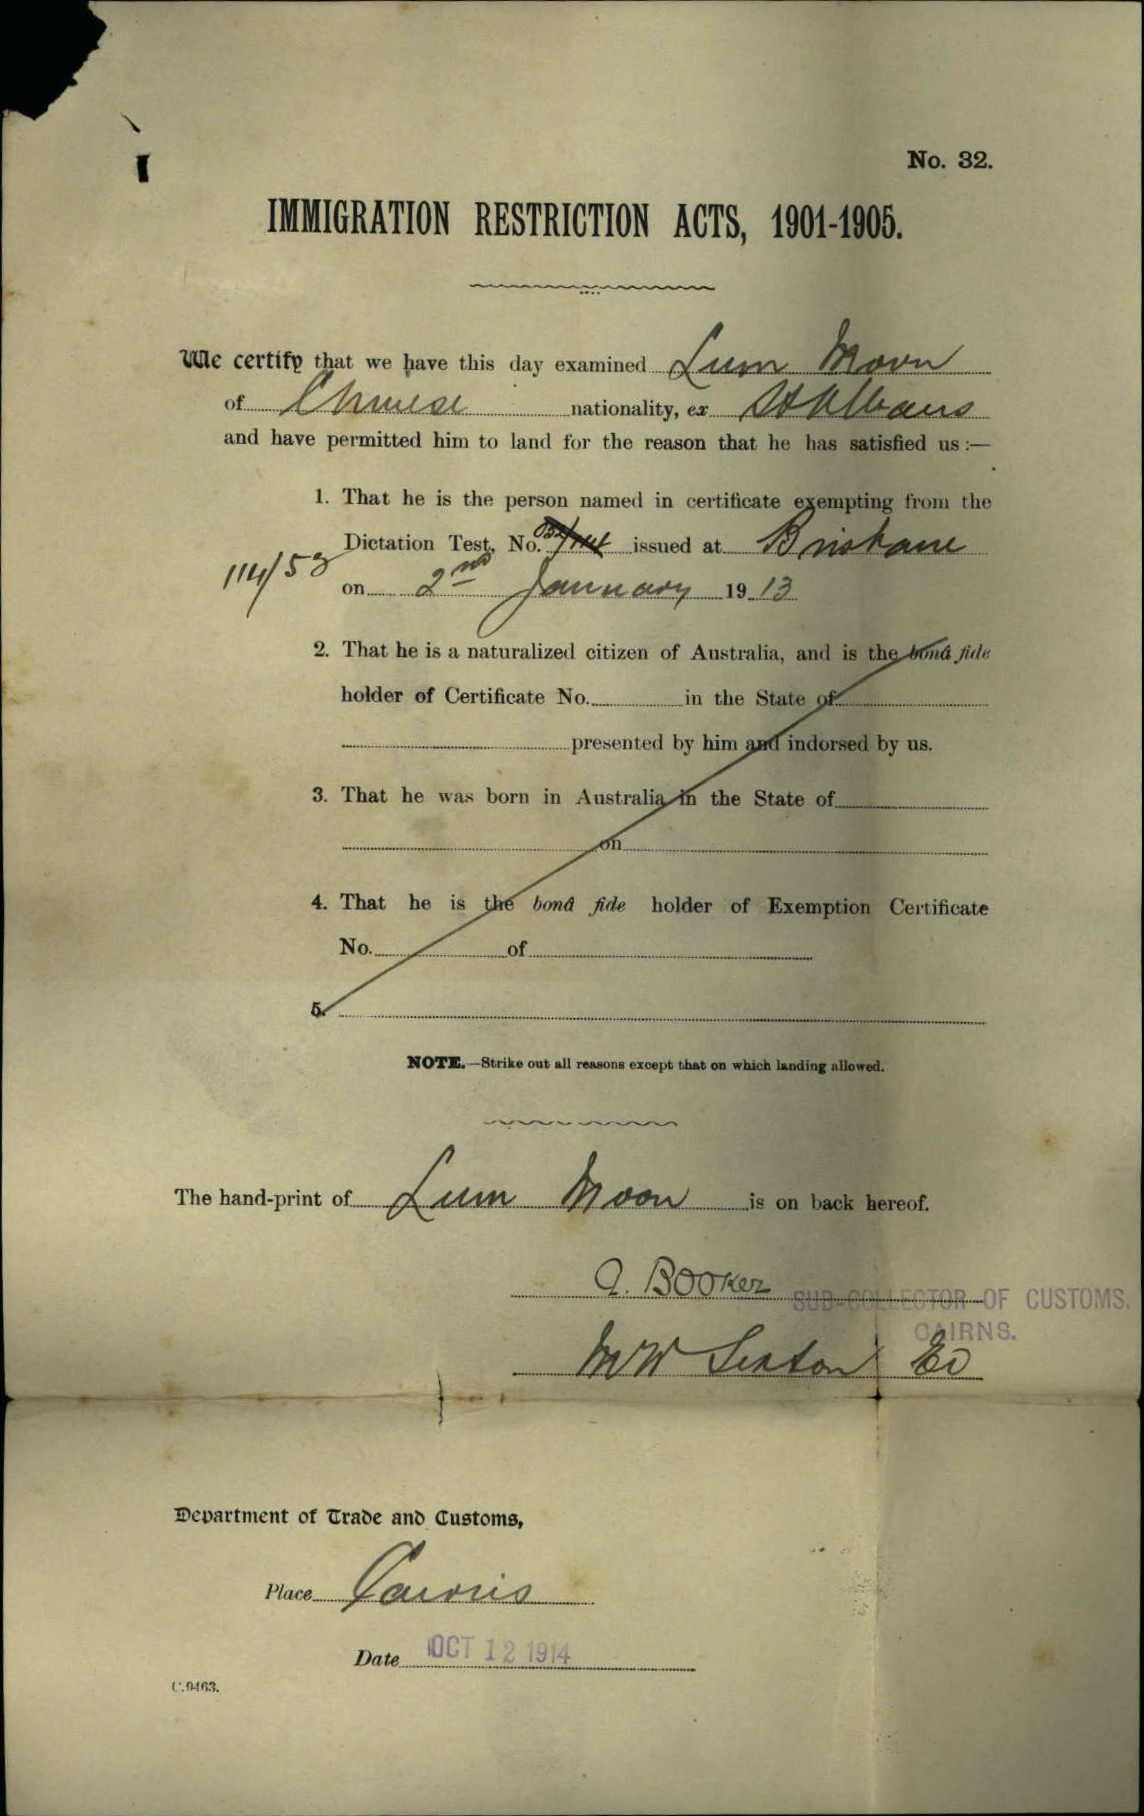 No. 32.
IMMIGRATION RESTRICTION ACTS, 1901-1905.
We certify that we have this day examined Lum Moon
of Chinese nationality, ex St Albans
and have permitted him to land for the reason that he has satisfied us:—
1. That he is the person named in certificate exempting from the
Dictation Test, No. issued at Brisbane
114/53
on 2nd January 1913
2. That he is a naturalized citizen of Australia, and is the bonâ fide
holder of Certificate No. in the State of
presented by him and indorsed by us.
3. That he was born in Australia in the State of
on
4. That he is the bonâ fide holder of Exemption Certificate
No. of
5.
NOTE.—Strike out all reasons except that on which landing allowed.
The hand-print of Lum Moon is on back hereof.
A. Booker SUB-COLLECTOR OF CUSTOMS.
CAIRNS.
MW Sexton EO
Department of Trade and Customs,
Place Cairns
Date OCT 12 1914
C.9463.